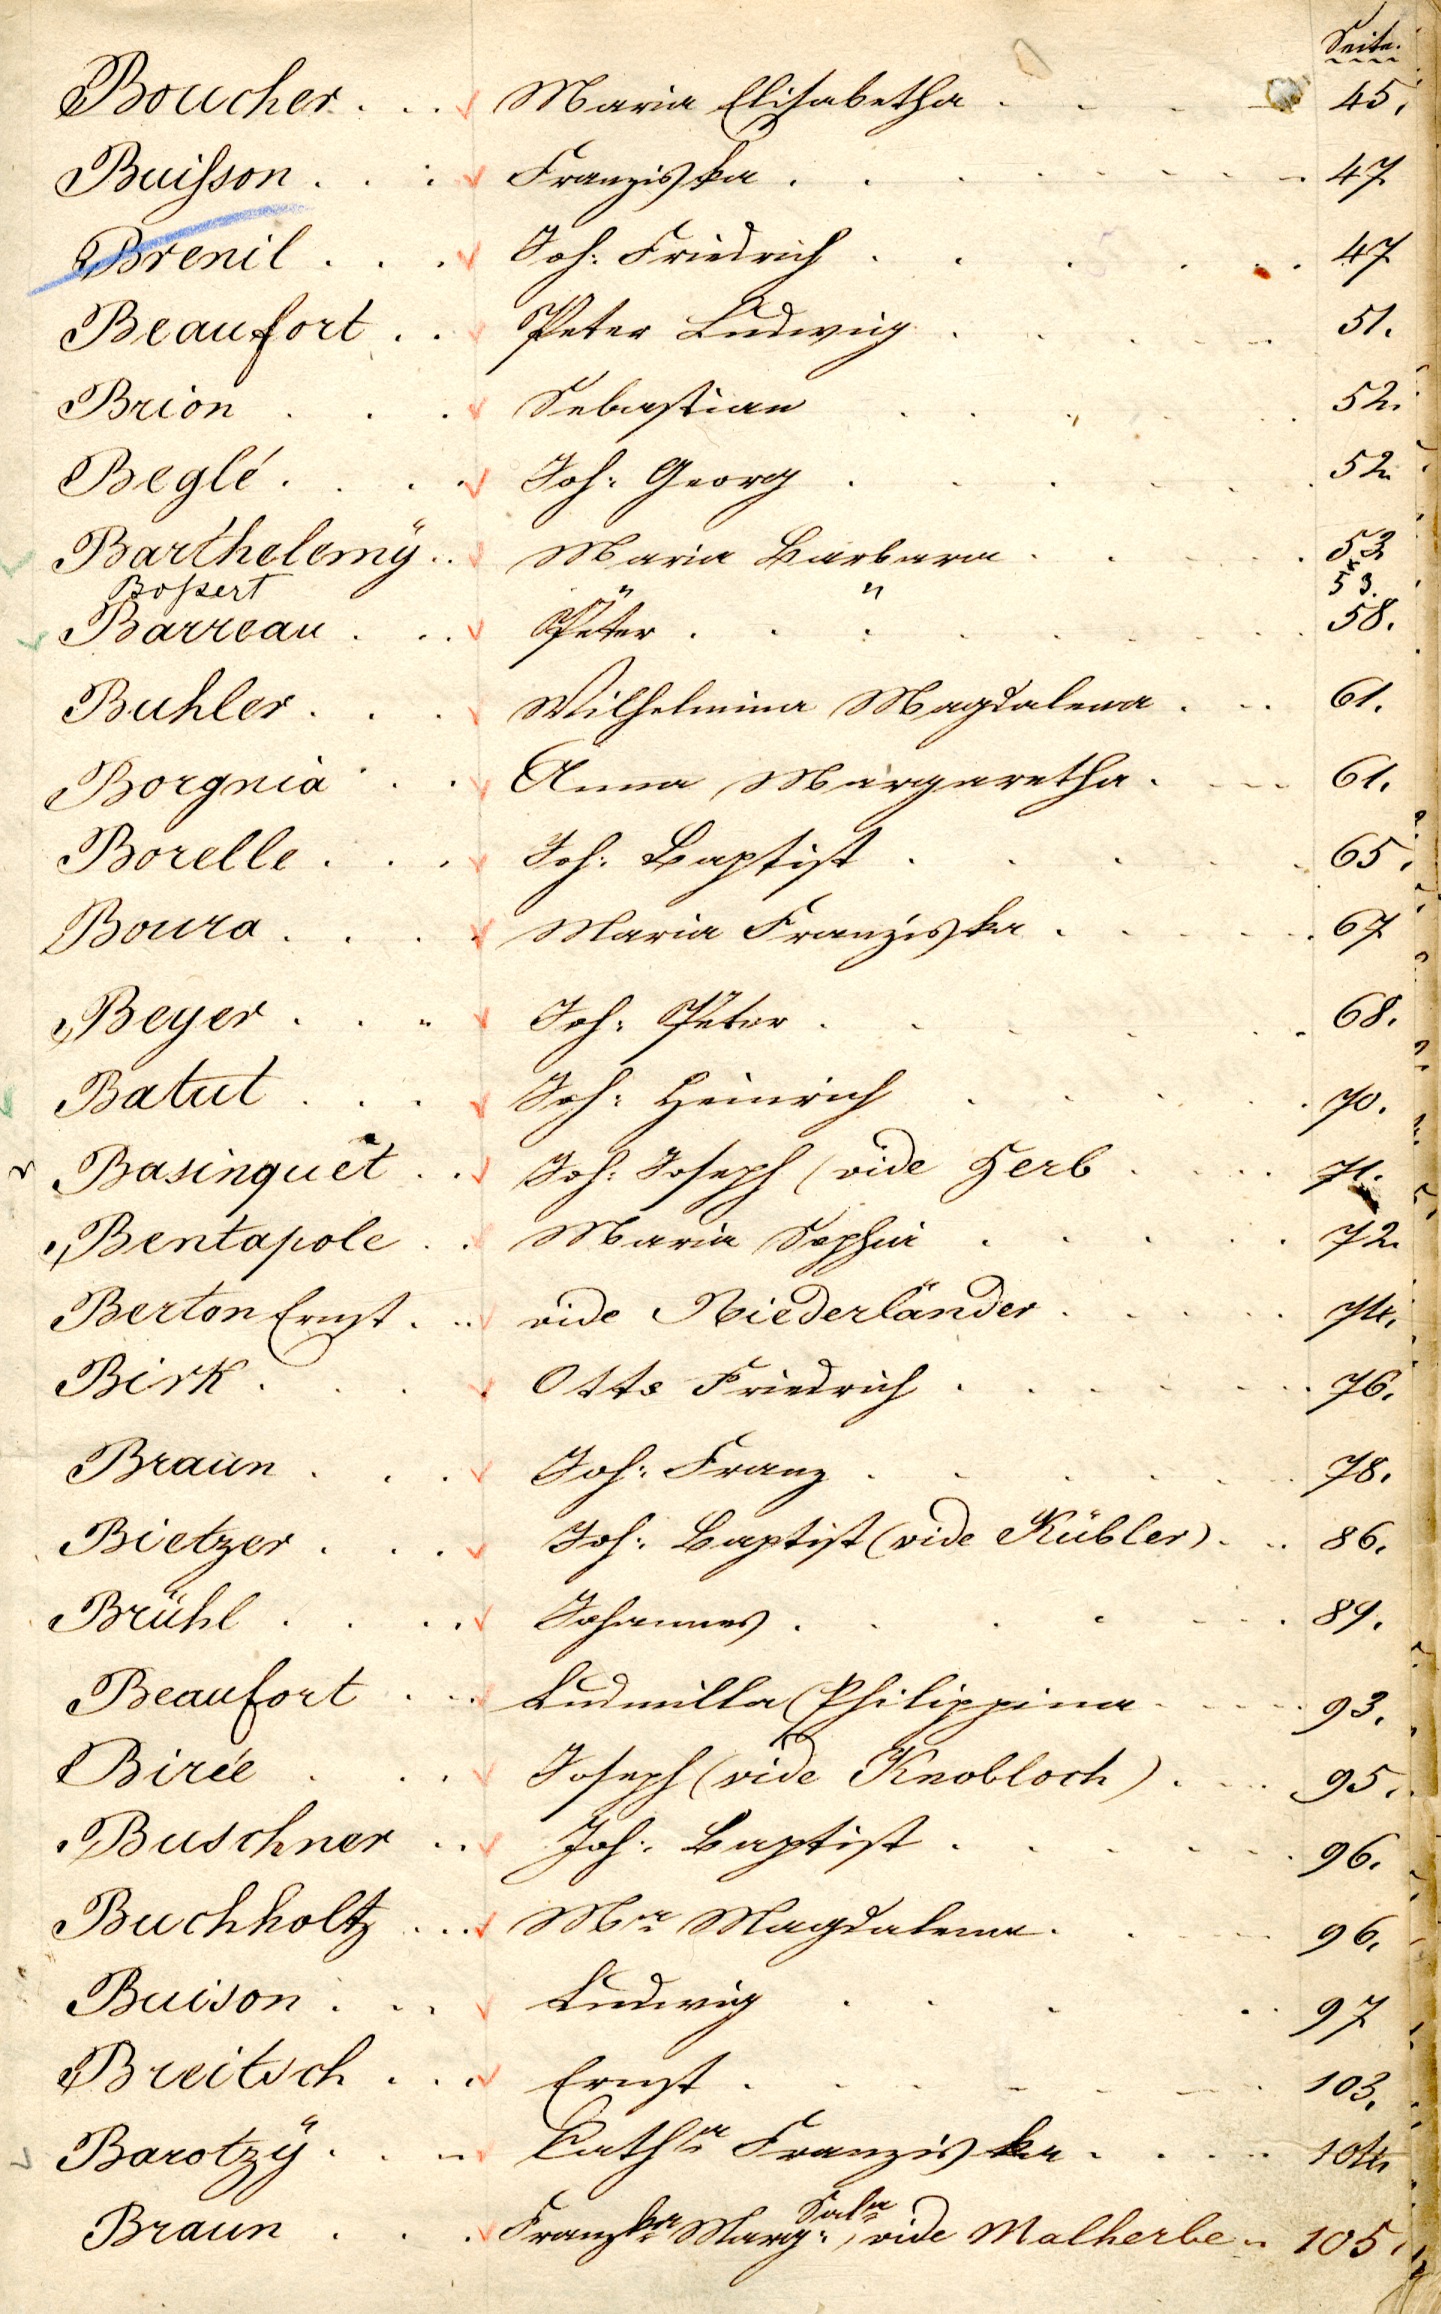 Seite.
Boucher . . . Maria Elisabetha . . . . 45.
Buisson . . . Franziska . . . . 47
Brenil . . . Joh: Friedrich . . . . 47
Beaufort . . Peter Ludwig . . . . 51.
Brion . . . Sebastian . . . . 52.
Beglé . . . Joh: Georg . . . . 52
Barthelemÿ . . Maria Barbara . . . . 53
Bossert " " 53.
Barreau . . . Peter . . . . 58.
Buhler . . . Wilhelmina Magdalena . . . 61.
Borgnia . . Anna Margaretha . . . . 61.
Borelle . . . Joh: Baptist . . . . 65.
Boura . . . Maria Franziska . . . . 67
Beyer . . . Joh: Peter . . . . 68.
Batut . . . Joh: Heinrich . . . . 70.
Basinquet . . Joh: Joseph (vide Herb . . . . 71.
Bentapole . . Maria Sophia . . . . 72
Berton Ernst . . . vide Niederländer . . . . 74.
Birk . . . Otto Friedrich . . . . 76.
Braun . . . Joh: Franz . . . . 78.
Bietzer . . . Joh: Baptist (vide Kübler) . . . 86.
Brühl . . . Johannes . . . . 89.
Beaufort . . . Ludmilla Philippina . . . . 93.
Birée . . . Joseph (vide Knobloch) . . . . 95.
Buschner . . Joh: Baptist . . . . 96.
Buchholtz . . . Mra Magdalena . . . . 96.
Buison . . . Ludwig . . . . 97
Breitsch . . . Ernst . . . . 103.
Barotzÿ . . . Catha Franziska . . . . 104.
Braun . . . Franzka Marg: Sala, vide Malherbe . . 105.